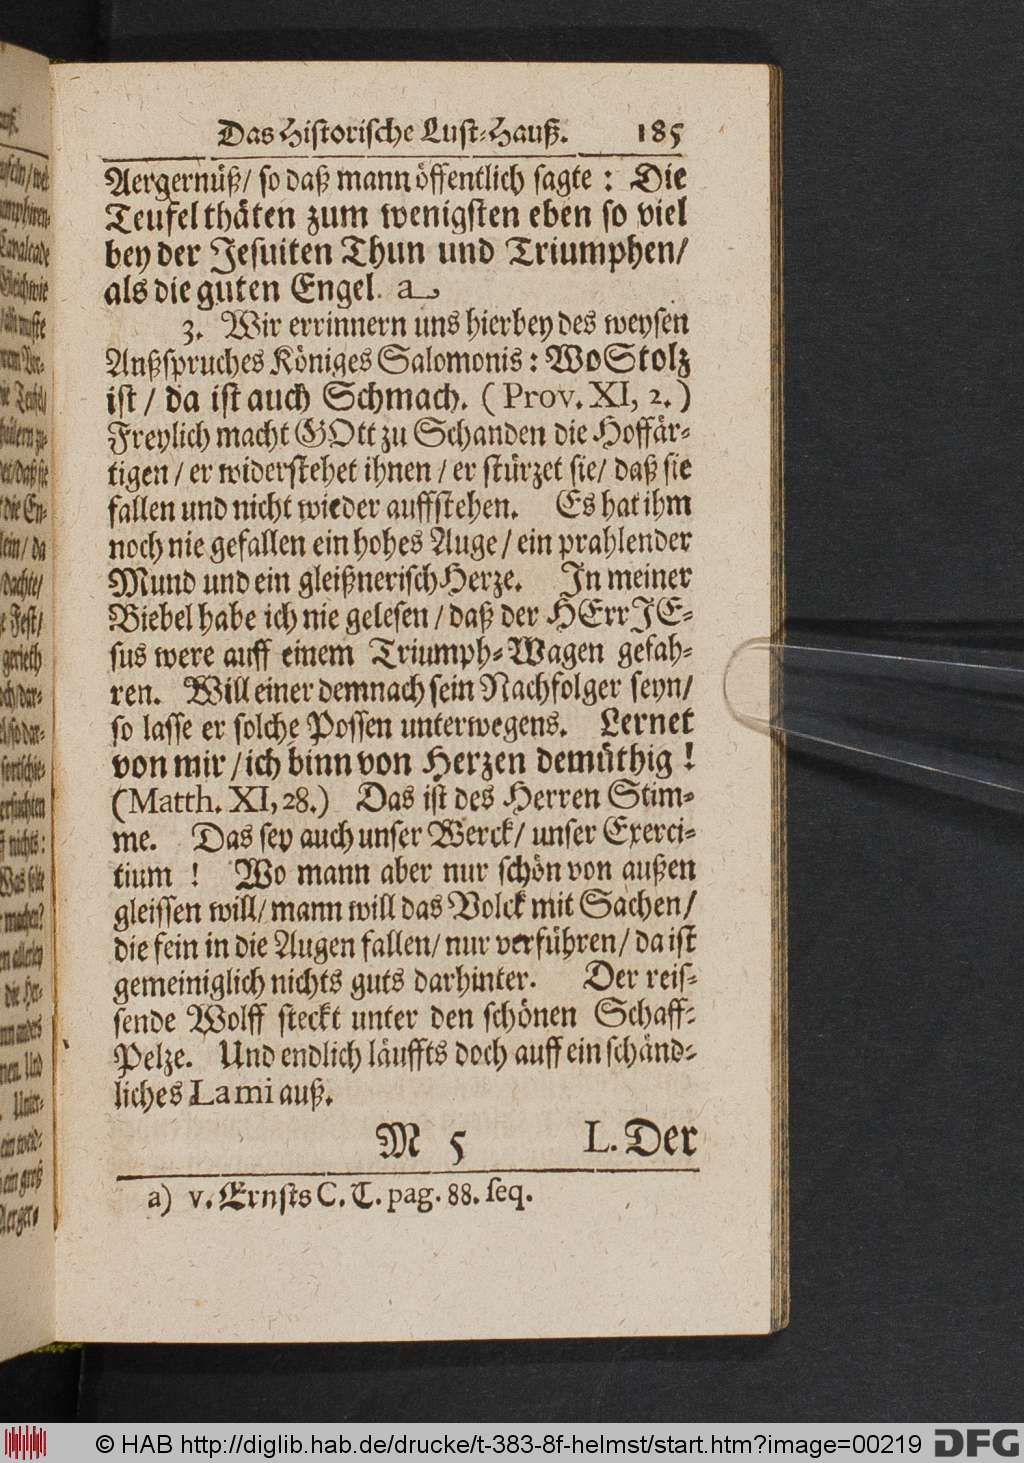 Das Historische Lust-Hauß. 185
Aergernüß/ so daß mann öffentlich sagte: Die
Teufel thäten zum wenigsten eben so viel
bey der Jesuiten Thun und Triumphen/
als die guten Engel. a
3. Wir errinnern uns hierbey des weysen
Anßspruches Königes Salomonis: Wo Stolz
ist / da ist auch Schmach. (Prov. XI, 2.)
Freylich macht GOtt zu Schanden die Hoffär-
tigen / er widerstehet ihnen / er stürzet sie/ daß sie
fallen und nicht wieder auffstehen. Es hat ihm
noch nie gefallen ein hohes Auge / ein prahlender
Mund und ein gleißnerisch Herze. In meiner
Biebel habe ich nie gelesen / daß der HErr JE-
sus were auff einem Triumph-Wagen gefah-
ren. Will einer demnach sein Nachfolger seyn/
so lasse er solche Possen unterwegens. Lernet
von mir / ich binn von Herzen demüthig!
(Matth. XI, 28.) Das ist des Herren Stim-
me. Das sey auch unser Werck/ unser Exerci-
tium! Wo mann aber nur schön von außen
gleissen will/ mann will das Volck mit Sachen/
die fein in die Augen fallen/ nur verführen/ da ist
gemeiniglich nichts guts darhinter. Der reis-
sende Wolff steckt unter den schönen Schaff-
Pelze. Und endlich läuffts doch auff ein schänd-
liches Lami auß.
M 5 L. Der
a) v. Ernsts C. T. pag. 88. seq.
© HAB http://diglib.hab.de/drucke/t-383-8f-helmst/start.htm?image=00219 DFG